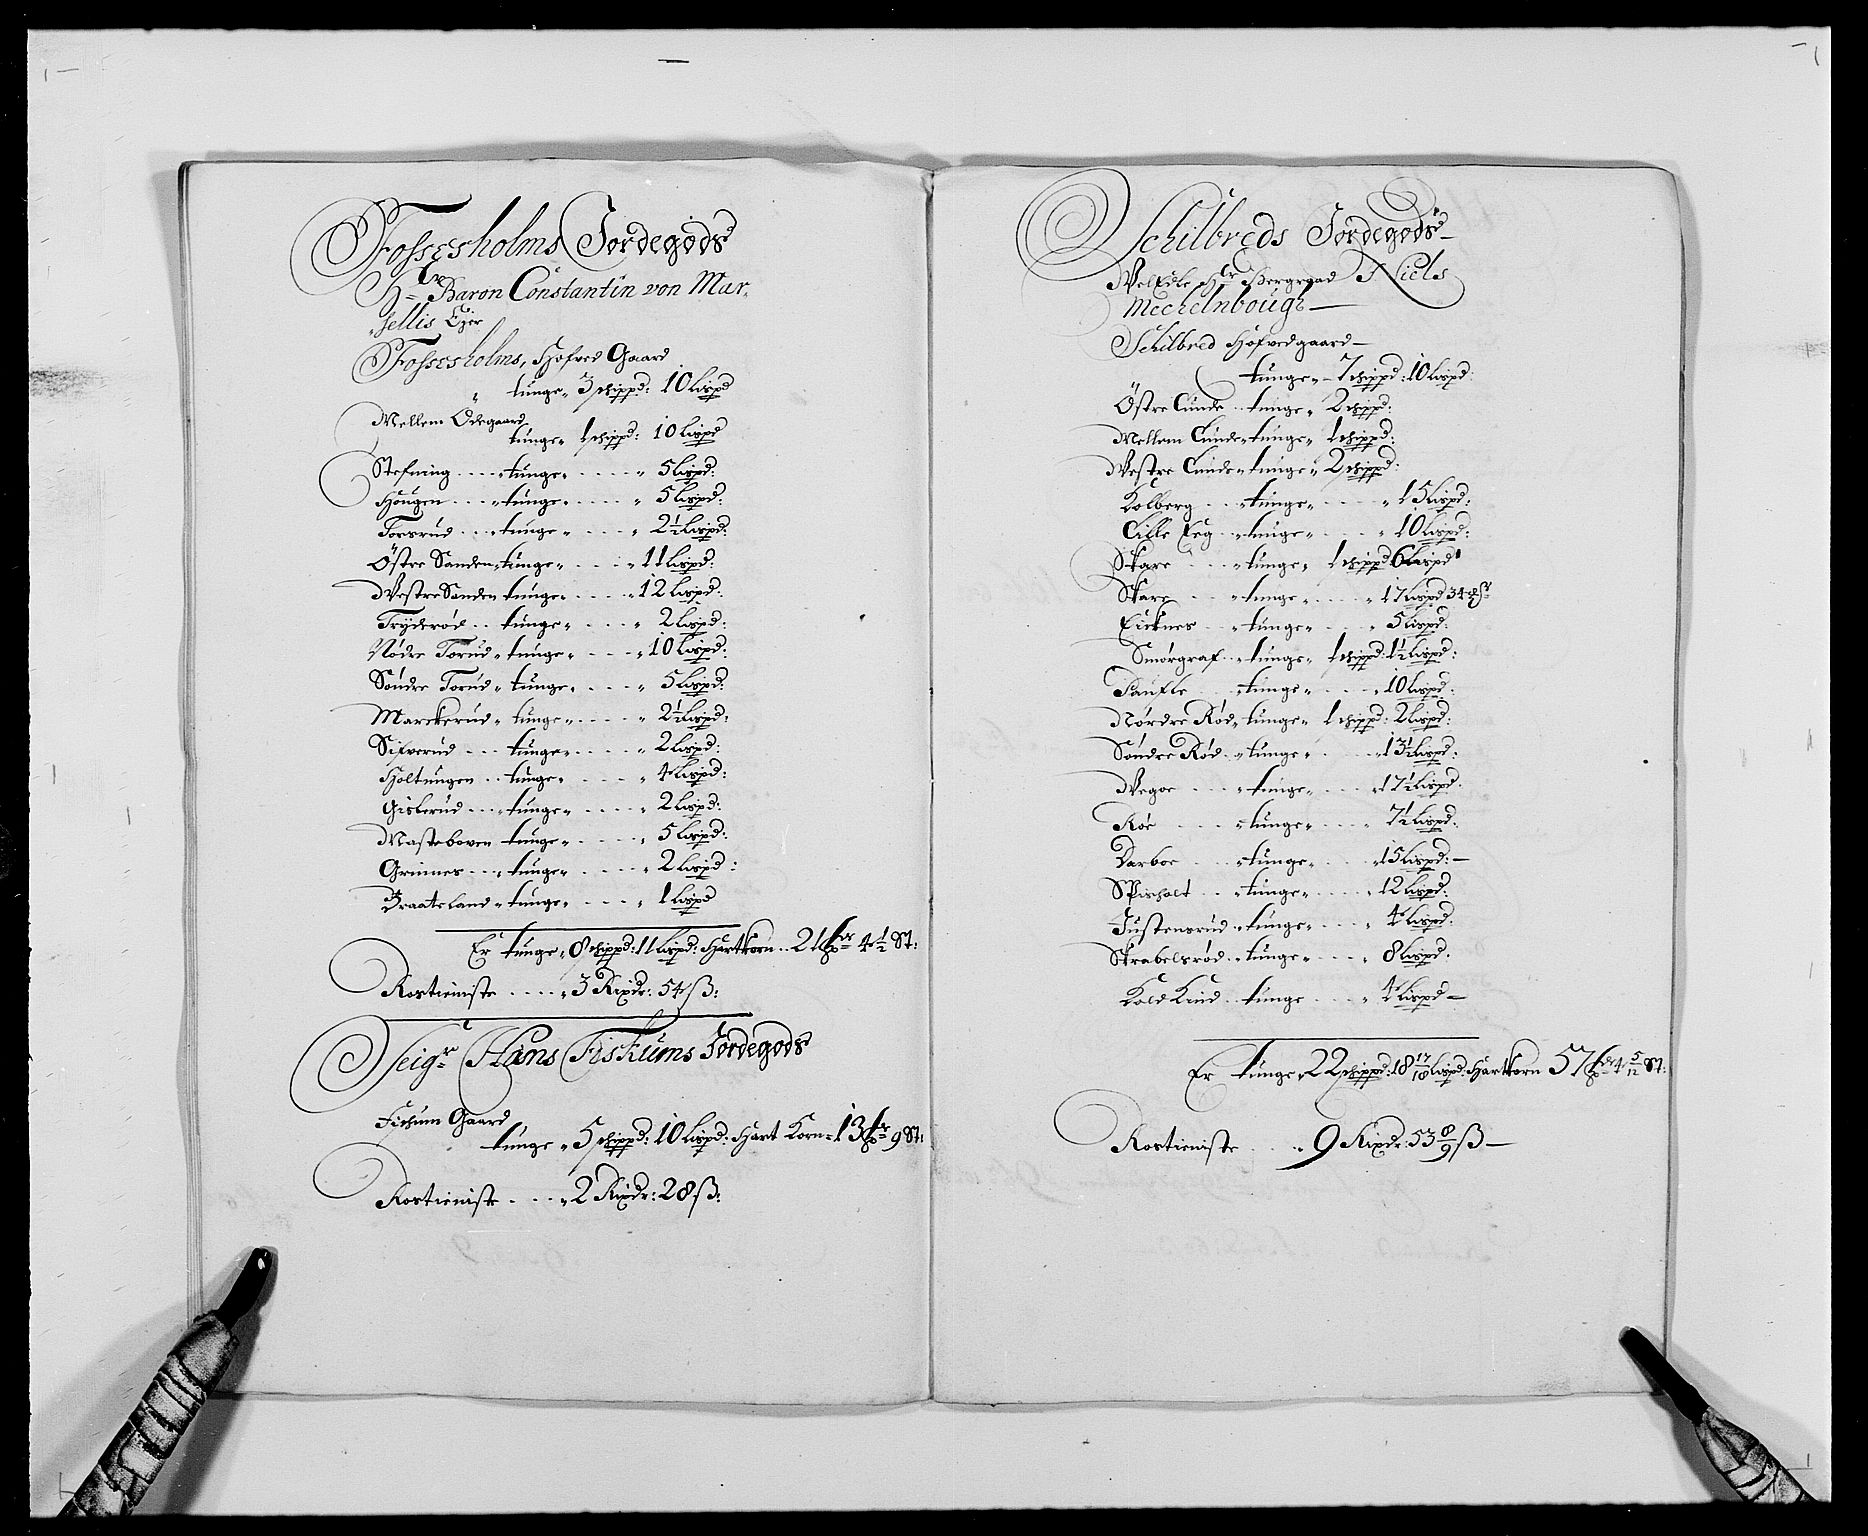 Fossesholms Jordegods
Hr Baron Constantin von Mar-
sellis Ejer
Fossesholms, Hofved Gaard
tunge 3 schippd: 10 Lispd
Mellem Ödegaard
tunge 1 schippd: 10 Lispd
Stefning .... tunge ..... 5 Lispd:
Hougen .... tunge ..... 5 Lispd:
Torsrud .... tunge ..... 2½ Lispd:
Östre Sanden tunge .... 11 Lispd:
Westre Sanden tunge .... 12 Lispd:
Tryderød .. tunge .... 2 Lispd:
Nødre Torud tunge .... 10 Lispd:
Søndre Torud tunge .... 5 Lispd:
Marckerud tunge .... 2½ Lispd:
Sifverud .... tunge .... 2 Lispd:
Holtungen .. tunge .... 4 Lispd:
Gislerud .... tunge .... 2 Lispd:
Masteboven tunge .... 5 Lispd:
Grinnes .... tunge .... 2 Lispd:
Braateland tunge .... 1 Lispd
Er tunge 8 schippd: 11 Lispd: Hartkorn .. 21 4½ St:
Rostieniste .... 3 Rixdr: 54 ß:
Seigr Hans Fiskums Jordegods
Fischum Gaard
tunge 5 schippd: 10 Lispd: Hart Korn 13 9 St:
Rostieniste .... 2 Rixdr: 28 ß:
Schilbreds Jordegods
WelEdle Hr Bergraad Niels
Mechelnboug
Schilbred Hofvedgaard
tunge 7 schippd: 10 Lispd:
Östre Lunde .. tunge 2 schippd:
Mellem Lunde tunge 1 schippd:
Westre Lunde tunge 2 schippd:
Kolberg .... tunge .... 15 Lispd:
Lille Eeg .. tunge .... 10 Lispd:
Skare .... tunge 1 schippd 6 Lispd
Skare .... tunge .... 17 Lispd 34
Eicknes .... tunge .... 5 Lispd:
Smørgraf .. tunge 1 schippd: 1½ Lispd:
Saufle .... tunge .... 10 Lispd:
Nørdre Rød tunge 1 schippd: 2 Lispd:
Søndre Rød .. tunge .... 13½ Lispd:
Wegoe .... tunge .... 17½ Lispd.
Røe .... tunge .... 7½ Lispd:
Darboe .... tunge .... 15 Lispd:
Spisholt .... tunge .... 12 Lispd:
Justensrud tunge .... 4 Lispd:
Strabelsrød .. tunge .... 8 Lispd:
Kold Kind .. tunge .... 4 Lispd
Er tunge 22 schippd: 18 17/18 Lispd: Hartkorn 57 4 5/12 St:
Rostieniste .... 9 Rixdr: 53 8/9 ß